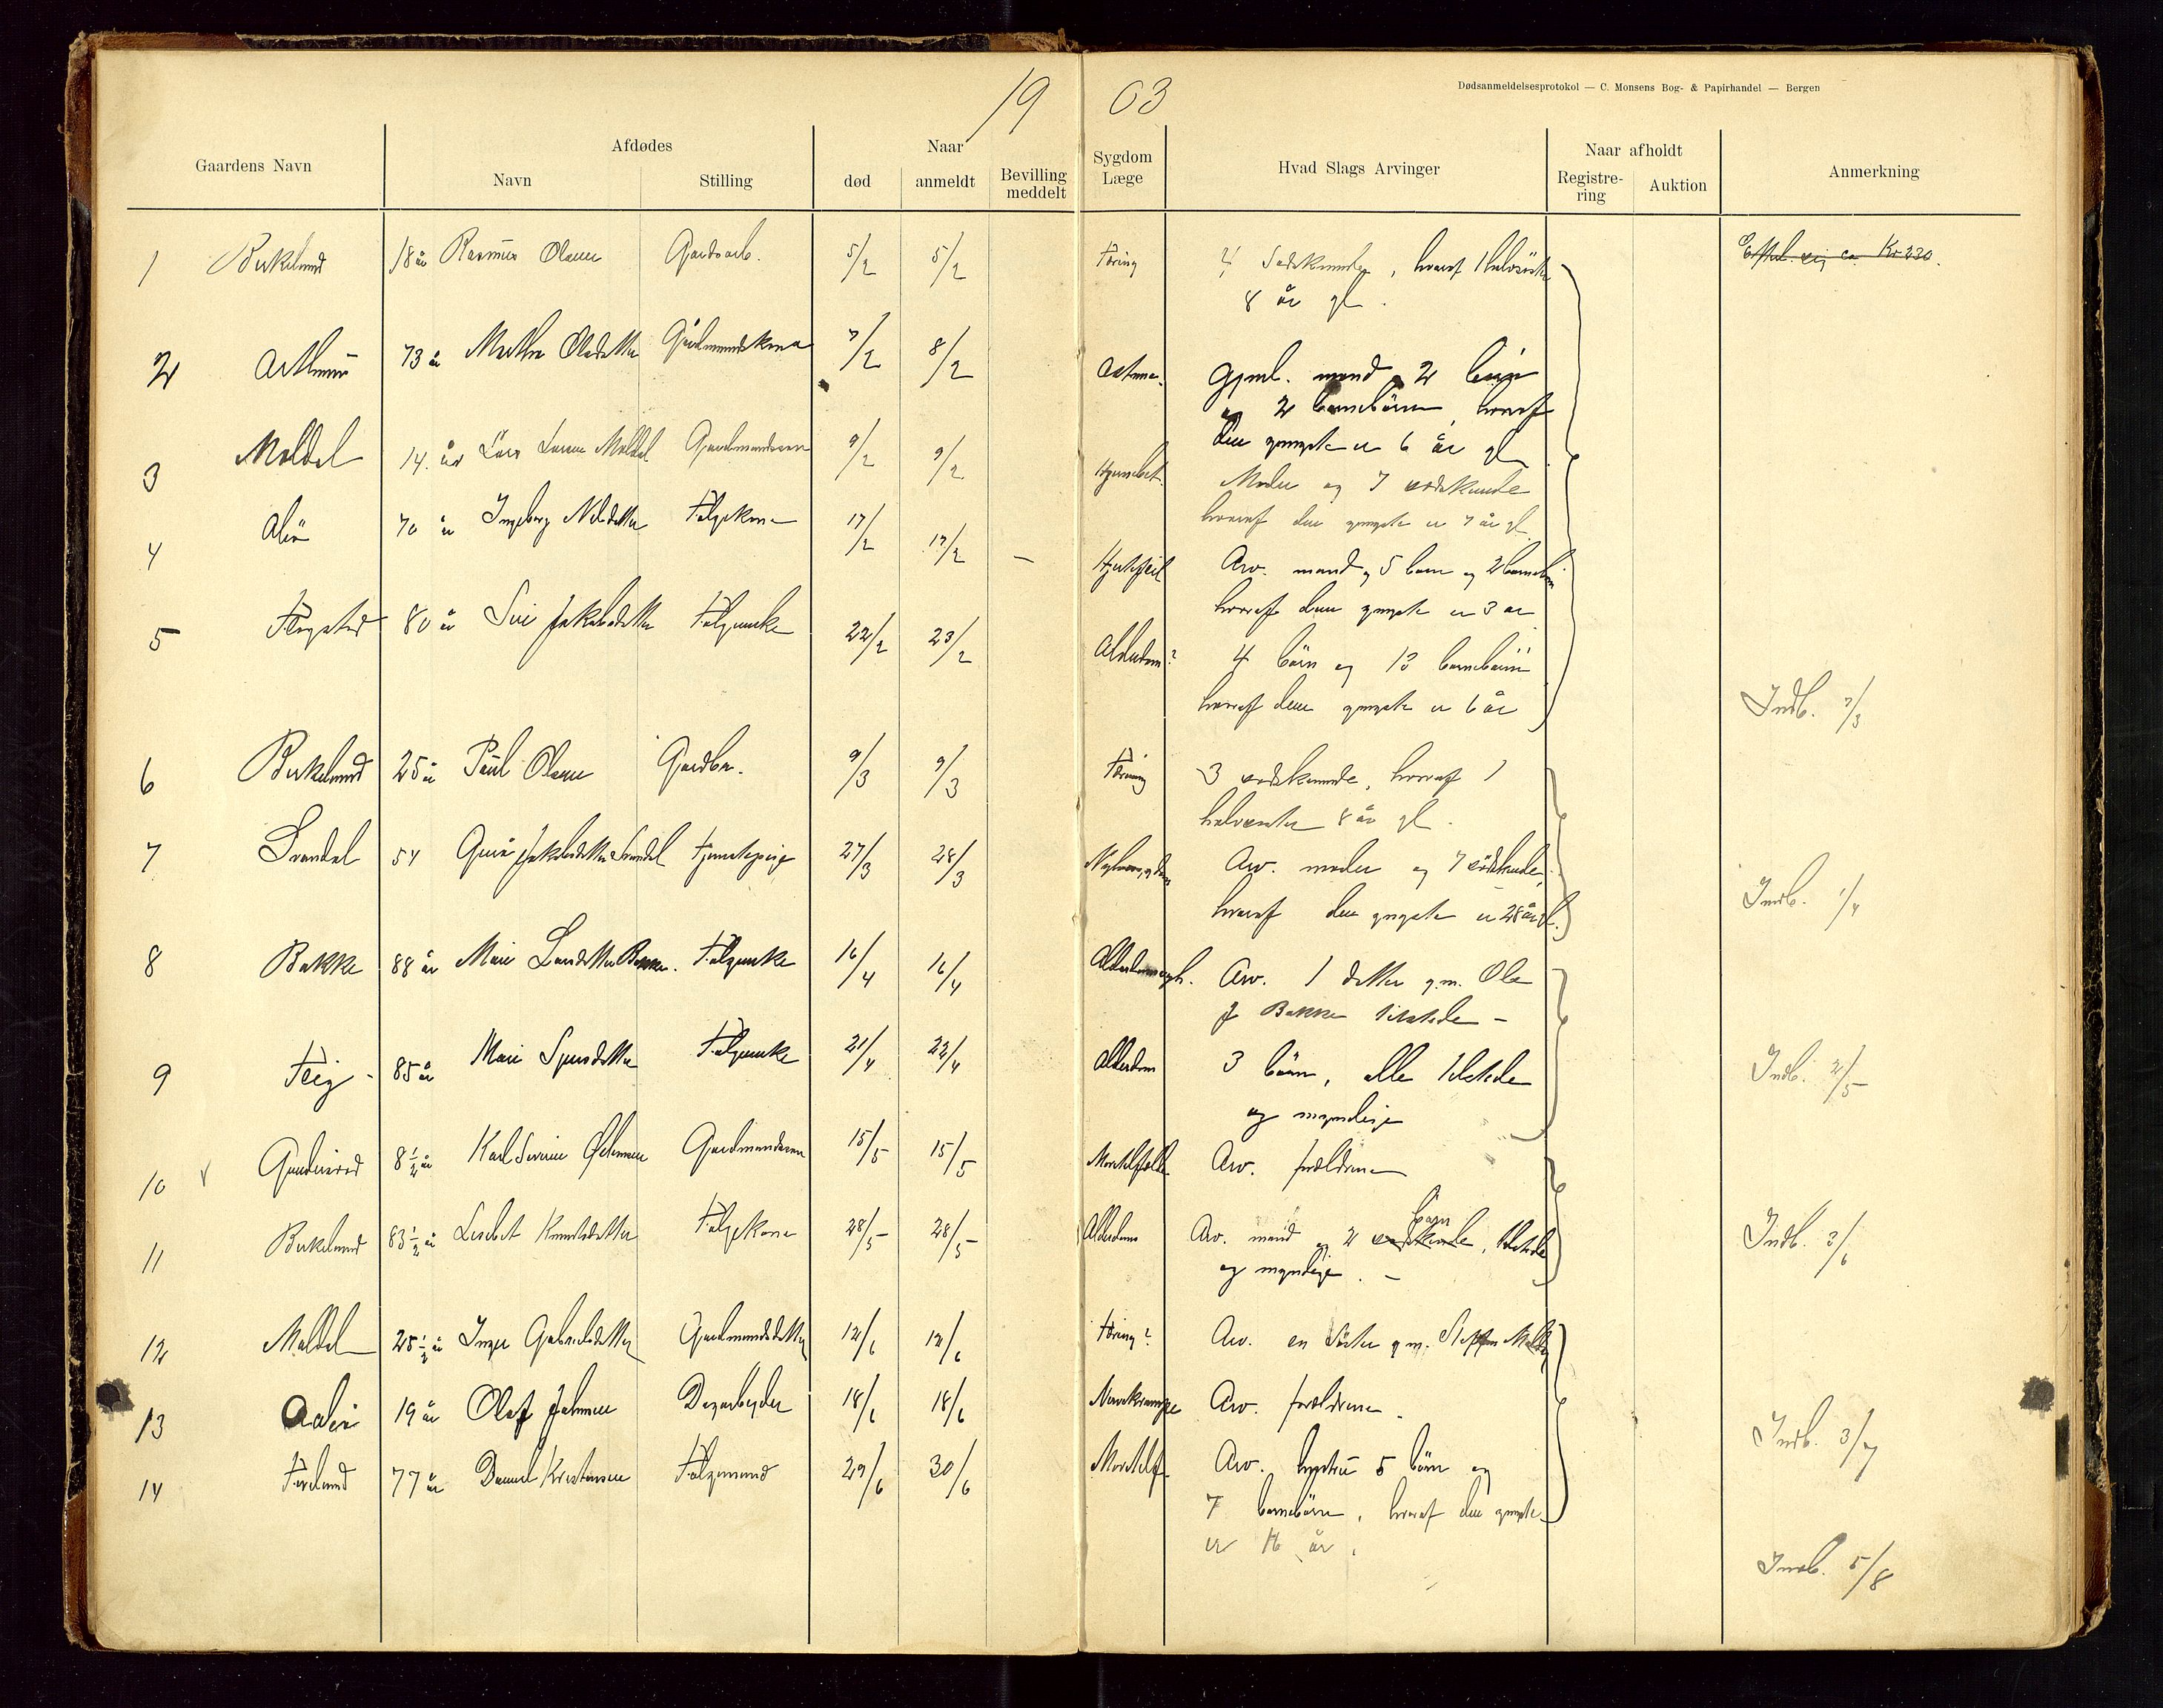 19 03
Dødsanmeldelsesprotokol — C. Monsens Bog- & Papirhandel — Bergen
Gaardens Navn
Afdødes
Navn
Stilling
Naar
død
anmeldt
Bevilling meddelt
Sygdom Læge
Hvad Slags Arvinger
Naar afholdt
Registrering
Auktion
Anmerkning
1 Birkelund 18 år Rasmus Olsen Gardarb. 5/2 5/2 Tæring 4 Sødskende, hvoraf 1 halvsøster
8 år gl.
2 73 år Olsdatter Gårdmandskona 7/2 8/2 Astma. Gjenl. mand, 2 børn
og 2 barnebörn, hvoraf
den yngste er 6 år gl
3 Moldal 14 år Lars Larsen Moldal Gardmandssøn 9/2 9/2 Hjernebet. Moder og 7 sødskende
hvoraf den yngste er 7 år gl
4 70 år Ingeborg Nilsdatter Følgekone 17/2 17/2 — Hjertefeil Arv. mand, 5 børn og 2 barnebørn
hvoraf den yngste er 3 år
5 80 år Siri Jakobsdatter Følgeenke 22/2 23/2 Alderdom? 4 börn og 13 barnebörn
hvoraf den yngste er 6 år
Indb. 7/3
6 Birkelund 25 år Paul Olsen Gardbr. 9/3 9/3 Tæring 3 sødskende, hvoraf 1
halvsøster 8 år gl.
7 54 Jakobsdatter 27/3 28/3 Arv. moder og 7 sødskende,
hvoraf den yngste er 28 år gl.
Indb. 1/4
8 Bakke 88 år Mari Larsdatter Bakke. Følgeenke 16/4 16/4 Arv. 1 datter g.m. Ole
J Bakke tilstede —
9 Teig 85 år Mari Sjursdatter Følgeenke 21/4 22/4 Alderdom 3 børn, alle tilstede
og myndige
Indb. 2/5
10 8 1/2 år Karl Severin Gardmandssøn 15/5 15/5 Arv. forældrene
11 Birkelund 83 1/2 år Lisebet Knutsdatter Følgekone 28/5 28/5 Alderdom Arv. mand og 2 sødskende børn, tilstede
og myndige. —
Indb. 3/6
12 Moldal 25 1/2 år Inger Gabrielsdatter Gardmandsdatter 12/6 12/6 Tæring? Arv. en søster g.m. Steffen
13 19 år Olaf Johnsen Dagarbejder 18/6 18/6 Nervekrampe Arv. forældrene.
Indb. 3/7
14 77 år Daniel Kristensen Følgemand 29/6 30/6 Arv. hustru 5 børn og
7 barnebørn, hvoraf den yngste
er 16 år.
Indb. 5/8